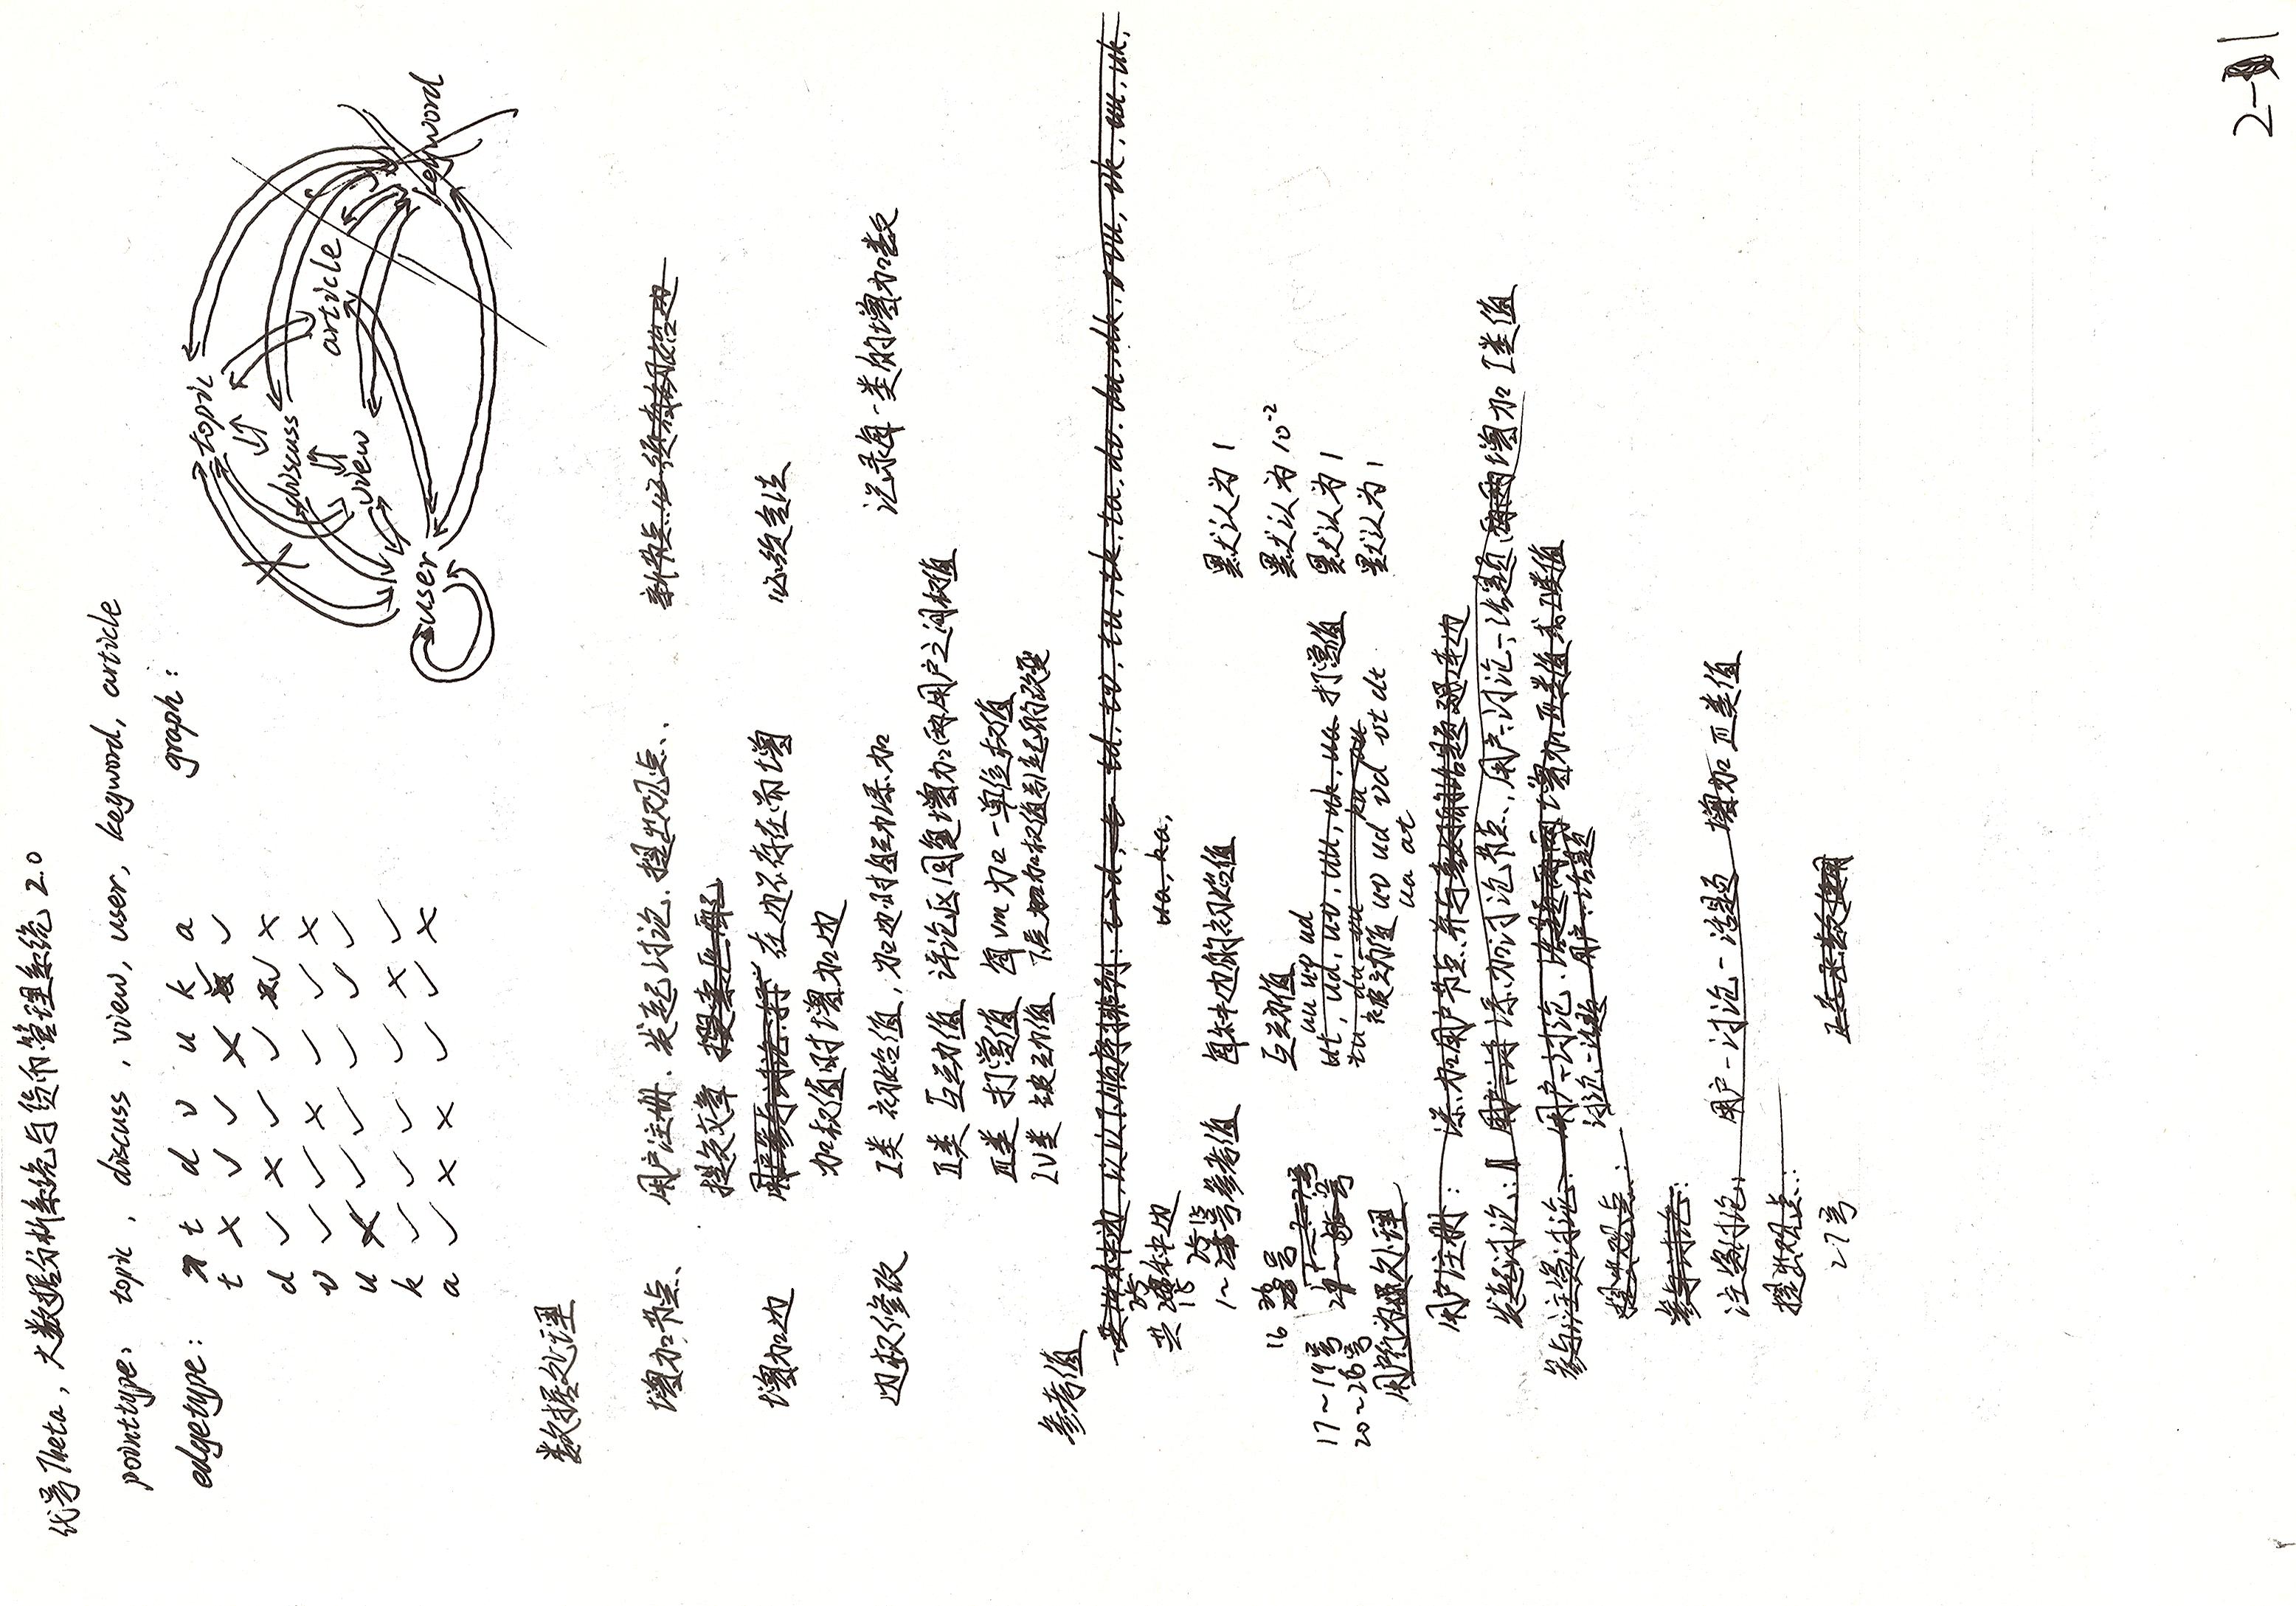 代号Theta，大数据分析系统与货币管理系统 2.0
pointtype： topic , discuss , view, user, keyword, article
edgetype： t d v u k a
graph：
t × ✓ ✓ × ✓ ✓
d ✓ × ✓ ✓ ✓ ×
v ✓ ✓ × ✓ ✓ ×
u × ✓ ✓ ✓ ✓ ✓
k ✓ ✓ ✓ ✓ × ✓
a ✓ × × ✓ ✓ ×
topic
discuss
article
view
user
keyword
数据处理
增加节点、 用户注册、发起讨论、提出观点、 新节点必须有初始边
提交文章 搜索匹配
增加边 在边不存在而增 必须合法
加权值时增加边
边权修改 I类 初始值，加边时自动添加 记录每一类的增加数
II类 互动值 评论区回复增加两用户之间权值
III类 打赏值 每vm加一单位权值
IV类 被动值 下层加权值引起的改变
参考值
一共 种边，以以下顺序排列： td, tv, tu, tk, ta, dv, du, dk, vu, vk, uu, uk,
ua, ka,
共 种边
25
15
25 15
1~ 号参考值 每种边的初始值 默认为1
16 号 互动值 默认为10⁻²
uu uv ud
17~19号 ut, ud, uv, uu, uk, ua 打赏值 默认为1
tu, du, vu ku au
20~26号 被动值 uv ud vd vt dt 默认为1
ua at
用户行为 处理
用户注册： 添加用户节点并与 话题 连边
发起讨论： 添加讨论节点，用户-讨论-话题 两两增加 I类值
参与/注资讨论： 用户-讨论、话题两两增加 II类值或 类值
讨论-话题 用户-话题
提出观点：
参与讨论：
注资讨论： 用户-讨论-话题 增加 III类值
提出观点：
27号
2-1